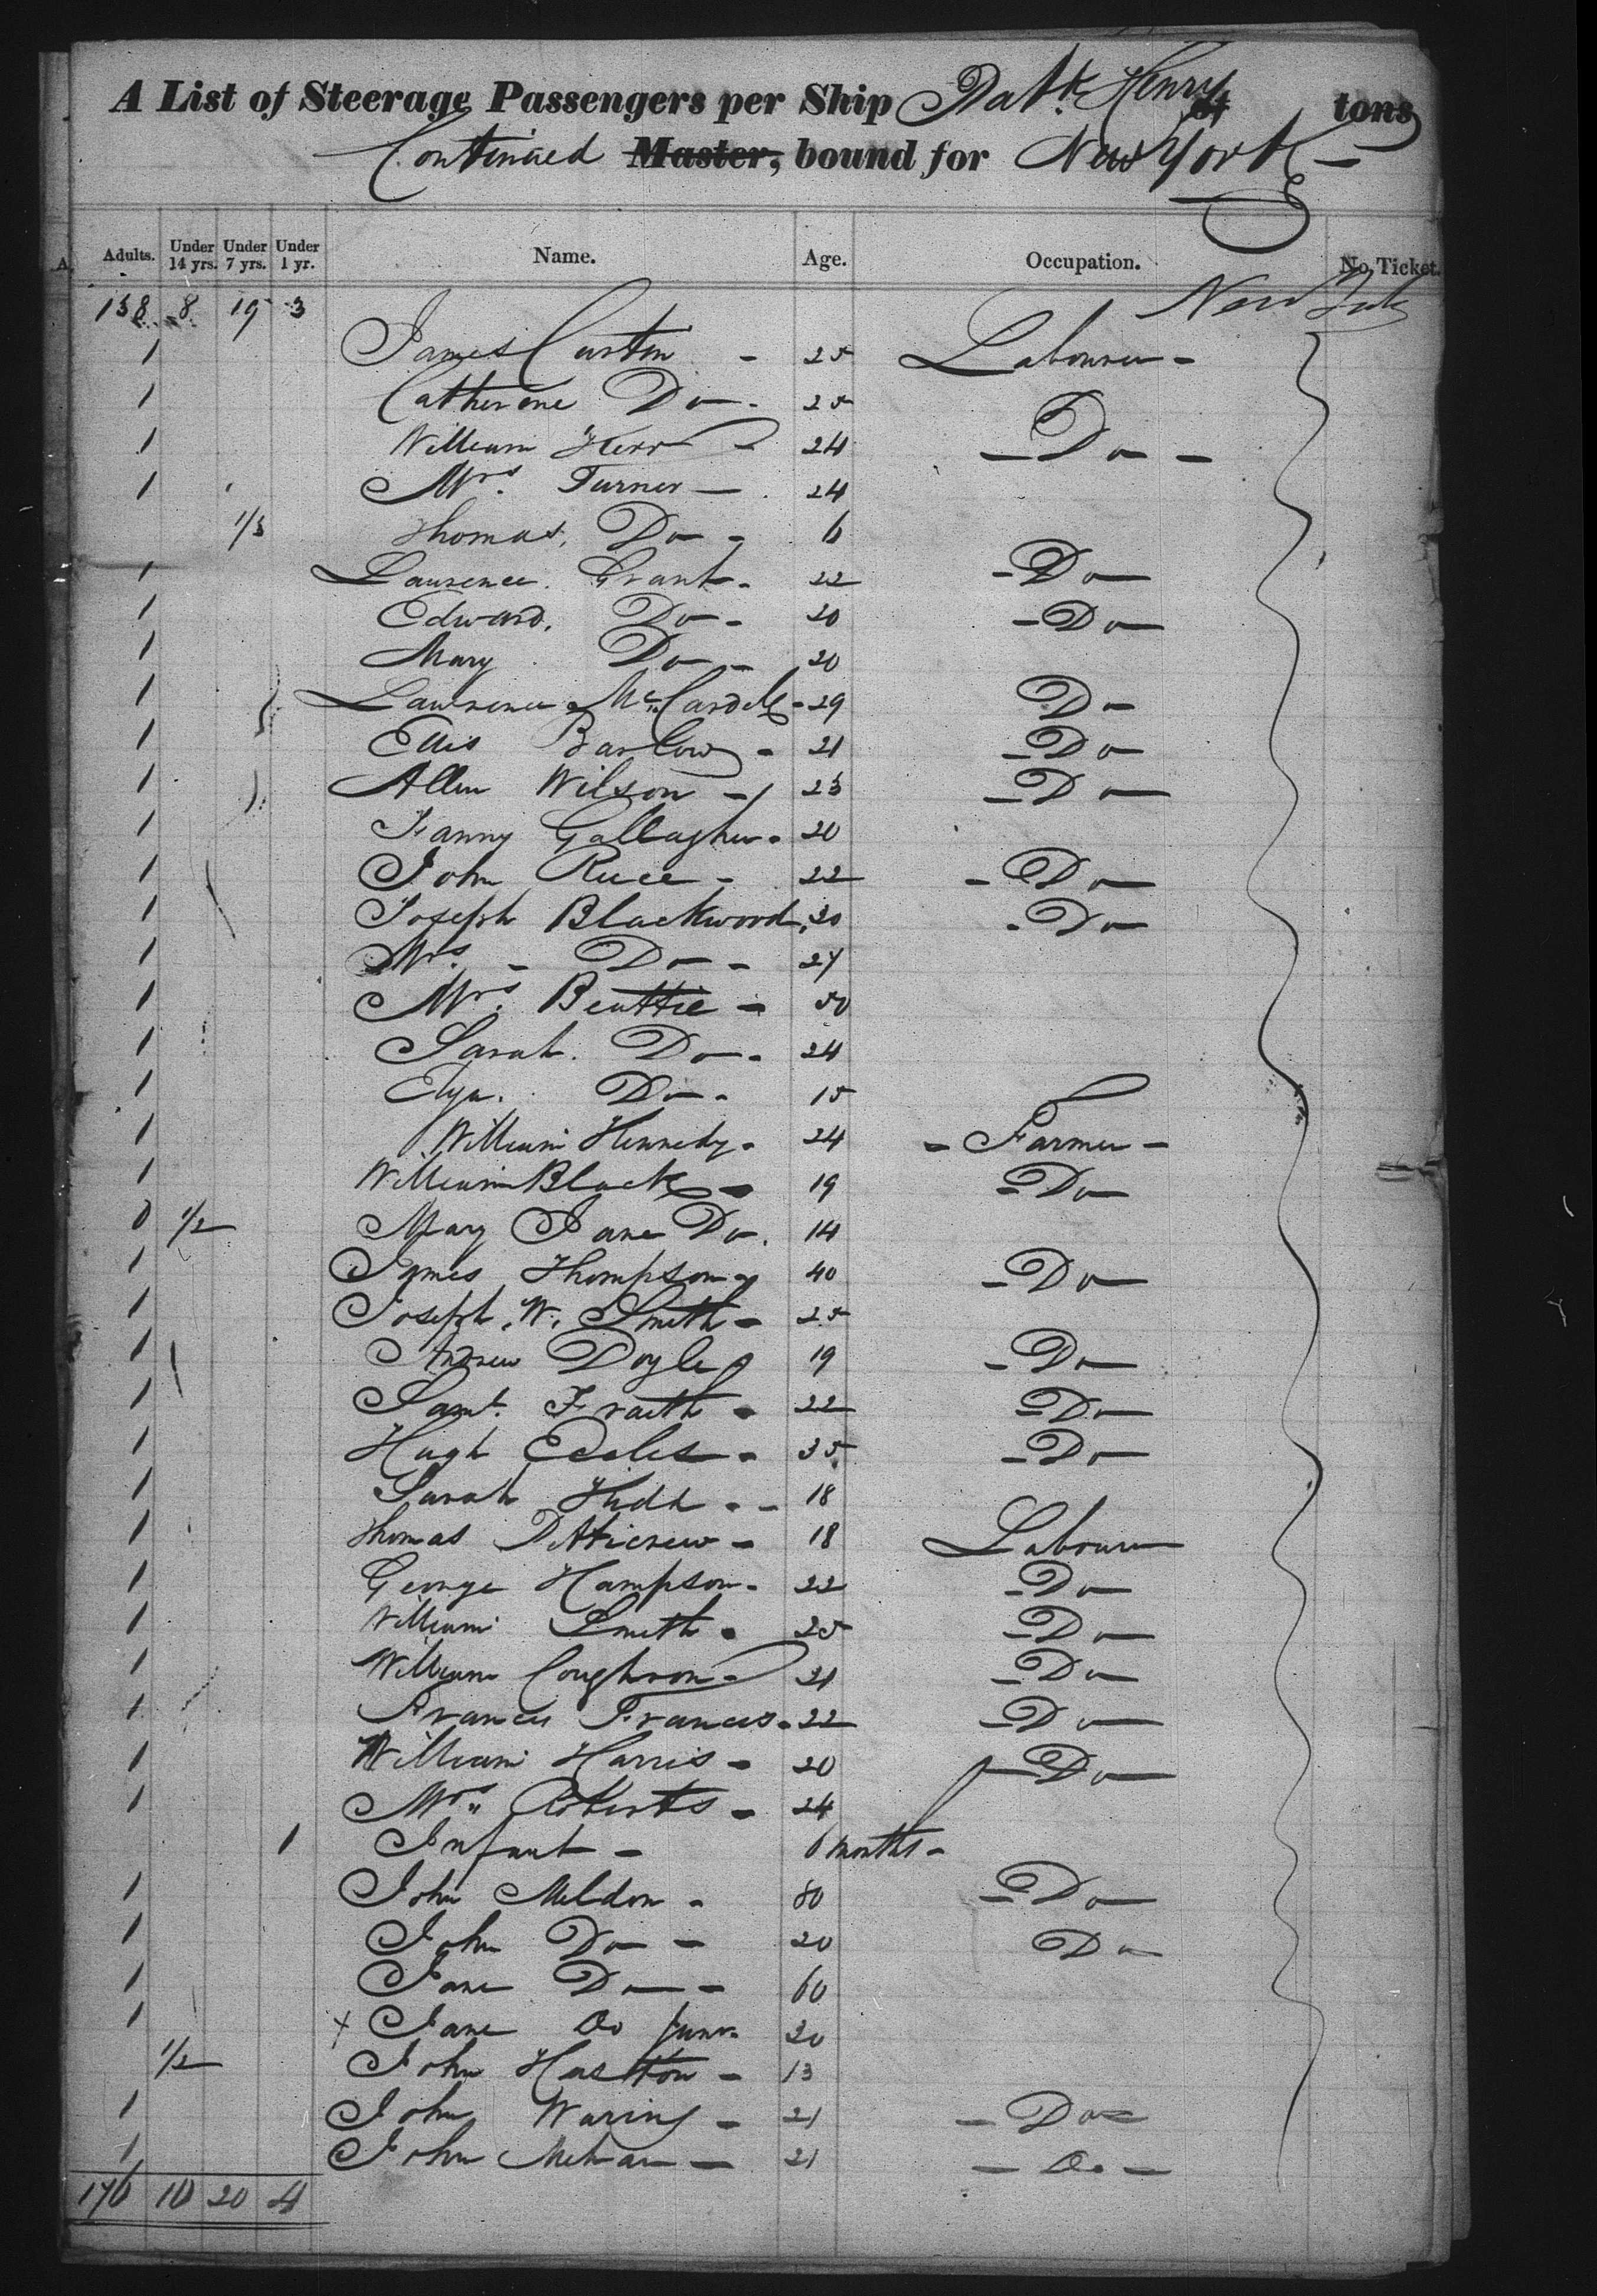 A List of Steerage Passengers per Ship Patk. Henry of tons
Continued Master, bound for New York
Adults. Under 14 yrs. Under 7 yrs. Under 1 yr. Name. Age. Occupation. No. Ticket.
138 8 19 3 New
1 James 25 Labourer
1 Catherine Do 25
1 William Kerr 24 Do
1 Mrs. Turner 24
1/3 Thomas Do 6
1 Laurence Grant 22 Do
1 Edward Do 20 Do
1 Mary Do 20
1 Lawrence McCardle 29 Do
1 Ellis Barlow 21 Do
1 Allen Wilson 23 Do
1 Fanny Gallagher 20
1 John 22 Do
1 Joseph Blackwood 30 Do
1 Mrs. Do 27
1 Mrs. Beattie 50
1 Sarah Do 24
1 Do 15
1 William Kennedy 24 Farmer
1 William Black 19 Do
0 1/2 Mary Jane Do 14
1 James Thompson 40 Do
1 Joseph W. Smith 25
1 Andrew Doyle 19 Do
1 Saml. 22 Do
1 Hugh Eccles 35 Do
1 Sarah Kidd 18
1 Thomas 18 Labourer
1 George Hampson 22 Do
1 William Smith 25 Do
1 William Coughron 21 Do
1 Francis Francis 22 Do
1 William Harris 20 Do
1 Mrs. Roberts 24
1 Infant 6 months
1 John Meldon Do
1 John Do 20 Do
1 Jane Do 60
1 x Jane Do Junr. 20
1/2 John 13
1 John Waring 21 Do
1 John 21 Do
176 10 20 4